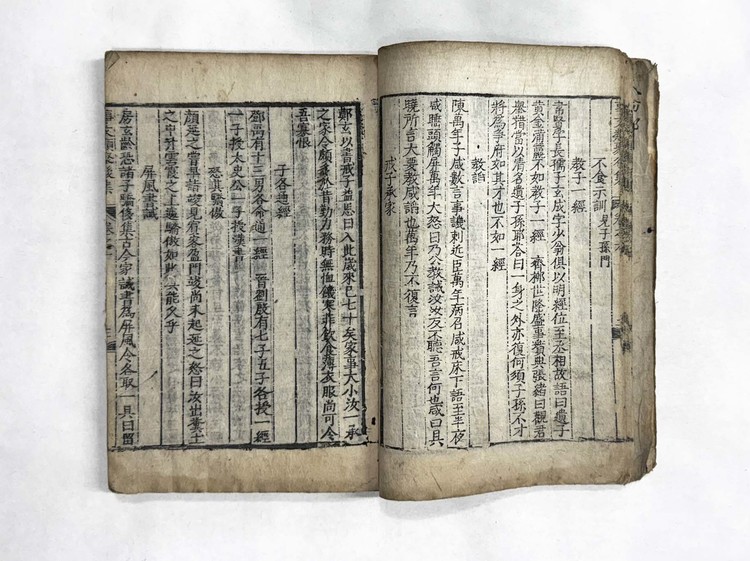 不食示訓 見子孫門
教子一經
韋賢字長孺子玄成字少翁俱以明經位至丞相故語曰遺子
黃金滿籯不如教子一經 齊柳世隆盛事墳典張緒曰觀君
舉措當以清名遺子孫耶答曰一身之外亦復何須子孫不才
將爲爭府如其才也不如一經
教諂
陳萬年子咸數言事譏刺近臣萬年病召咸戒床下語至半夜
咸睡頭觸屏萬年大怒曰乃公教誡汝汝反不聽吾言何也咸曰具
曉所言大要教咸諂也萬年乃不復言
戒子承家
鄭玄以書戒子益恩曰入此歲來已七十矣家事大小汝一承
之家今頗差於昔勤力務時無恤饑寒菲飲食薄衣服尚可令
吾寡恨
子各通經
鄧禹有十三男各令通一經 晉劉殷有七子五子各授一經
一子授太史公一子授漢書
恐其驕傲
顏延之嘗早詣竣見有客盈門竣尚未起延之怒曰汝出糞土
之中升雲霞之上遽驕傲如此其能久乎
屏風書誡
房玄齡恐諸子驕侈集古今家誡書爲屏風令各取一具曰留
事文類聚後集